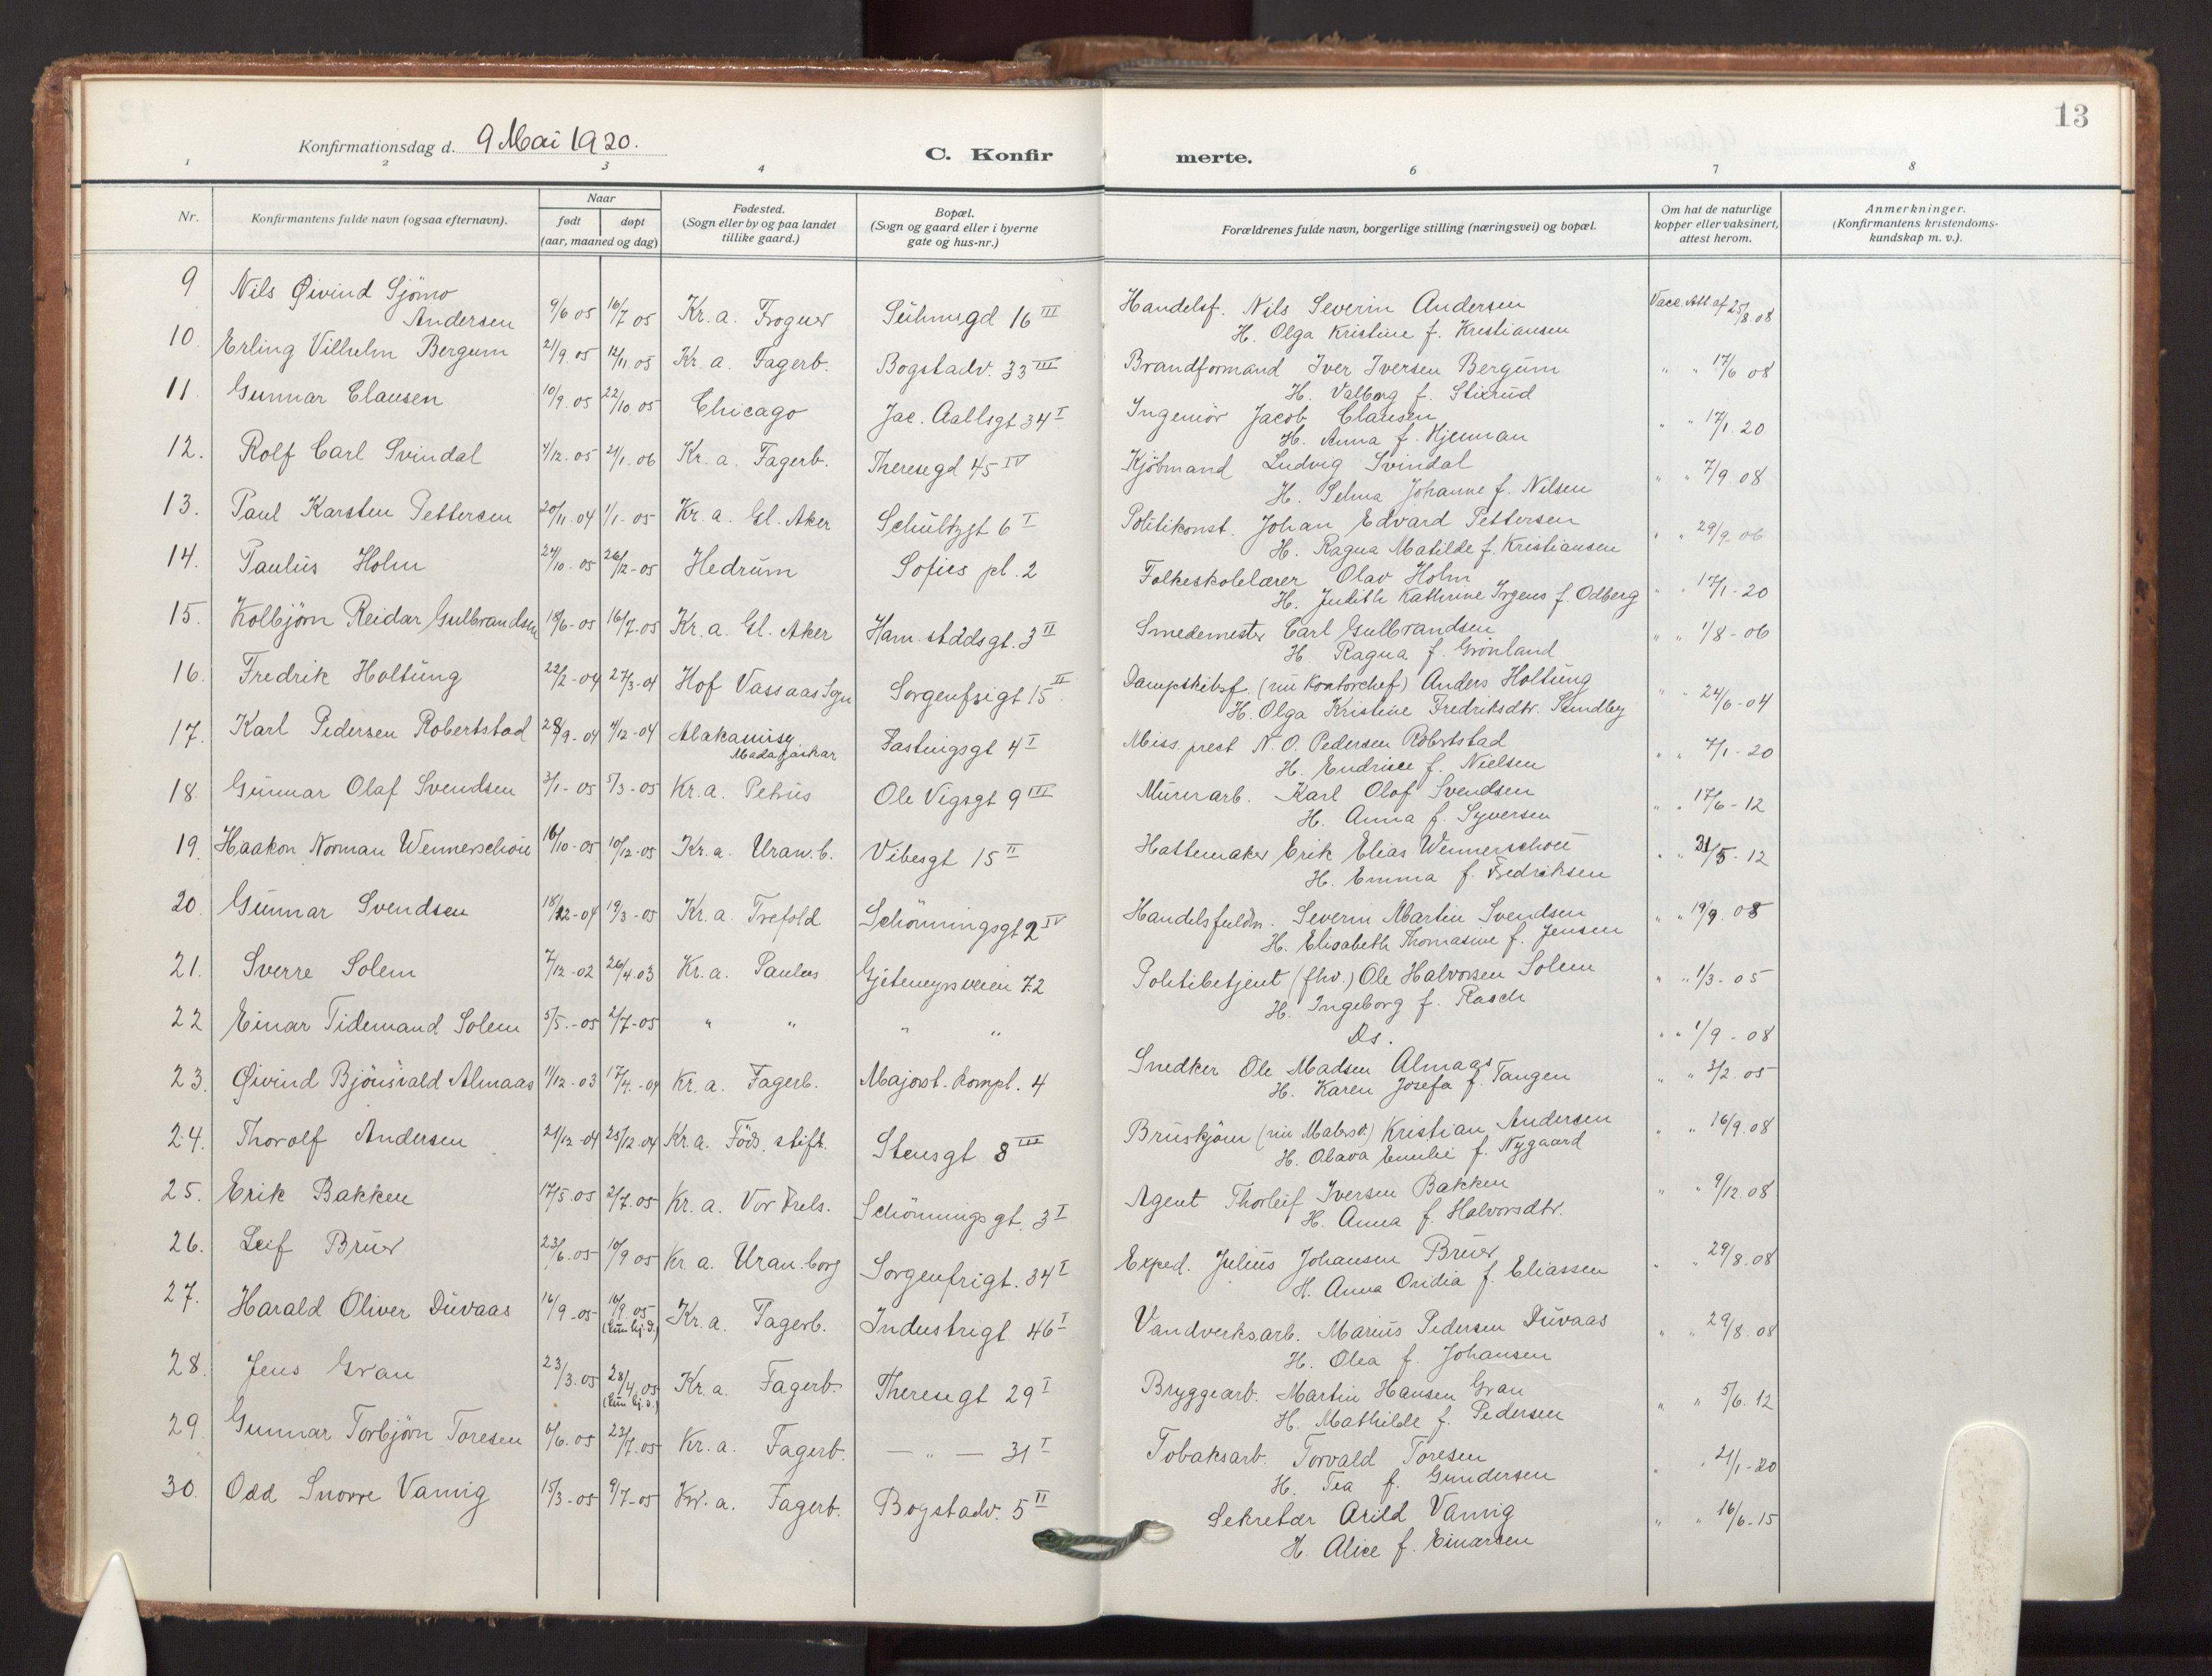 13
Konfirmationsdag d. 9 Mai 1920.
C. Konfirmerte.
1 2 3 4 6 7 8
Nr.
Konfirmantens fulde navn (ogsaa efternavn).
Naar
født døpt
(aar, maaned og dag)
Fødested.
(Sogn eller by og paa landet
tillike gaard.)
Bopæl.
(Sogn og gaard eller i byerne
gate og hus-nr.)
Forældrenes fulde navn, borgerlige stilling (næringsvei) og bopæl.
Om hat de naturlige
kopper eller vaksinert,
attest herom.
Anmerkninger.
(Konfirmantens kristendoms-
kundskap m. v.).
9 Nils Øivind Sjömo
Andersen 9/6 05 16/7 05 Kr.a. Frogner Suhmsgd 16 III Handelsf. Nils Severin Andersen Vacc. Att. af 25/8 08
H. Olga Kristine f. Kristiansen
10. Erling Vilhelm Bergum 21/9. 05 12/11. 05 Kr. a. Fagerb. Bogstadv. 33 III Brandformand Iver Iversen Bergum " " 17/6 08
H. Valborg f. Stixrud
11. Gunnar Clausen 10/9. 05 22/10 05 Chicago Jac. Aallsgt 34 I Ingeniör Jacob Clausen " " 17/1. 20
H. Anna f. Hjerman
12. Rolf Carl Svindal 4/12. 05 21/1. 06 Kr. a. Fagerb. Theresegd 45 IV Kjöbmand Ludvig Svindal " " 7/9 08
H. Selma Johanne f. Nilsen
13. Paul Karsten Pettersen 20/11. 04 1/1- 05 Kr. a. Gl. Aker Schultzgt 6 I Politikonst. Johan Edvard Pettersen " " 29/9 06
H. Ragna Matilde f. Kristiansen
14. Paulus Holm 24/10 - 05 26/12 - 05 Hedrum Sofies pl. 2 Folkeskolelærer Olav Holm " " 17/1 - 20
H. Judith Kathrine Irgens f. Odberg
15. Kolbjörn Reidar Gulbrandsen 18/6 - 05 16/7 - 05 Kr. a. Gl. Aker Ham.städsgt. 3 II Smedemester Carl Gulbrandsen " " 1/8 - 06
H. Ragna f. Grönland
16. Fredrik Holtung 22/2 - 04 27/3 - 04 Hof Vassaas Sogn Sorgenfrigt 15 II Dampskibsf. (nu Kontorchef) Anders Holtung " " 24/6 - 04
H. Olga Kristine Fredriksdtr. Sundby
17. Karl Pedersen Robertstad 28/9 - 04 4/12 - 04 Alakamisy
Madagaskar Fastingsgt 4 I Miss.prest N. O. Pedersen Robertstad " " 7/1 - 20
H. Endrice f. Nielsen
18. Gunnar Olaf Svendsen 3/1 - 05 5/3 - 05 Kr. a. Petrus Ole Vigsgt 9 III Murerarb. Karl Olaf Svendsen " " 17/6 - 12
H. Anna f. Syversen
19. Haakon Norman Wennerschou 16/10 - 05 10/12 - 05 Kr. a. Uran.b. Vibesgt 15 II Hattemaker Erik Elias Wennerschou " " 21/5 - 12
H. Emma f. Fredriksen
20. Gunnar Svendsen 18/12 - 04 19/3 - 05 Kr. a. Trefold Schönningsgt 2 IV Handelsfuldm. Severin Martin Svendsen " " 19/9 08
H. Elisabeth Thomasine f. Jensen
21. Sverre Solem 7/12 - 02 26/4. 03 Kr. a. Paulus Gjetemyrsveien 72 Politibetjent (fhv.) Ole Halvorsen Solem " " 1/3 - 05
H. Ingeborg f. Rasch
22 Einar Tidemand Solem 5/5. - 05 2/7 - 05 " " " " Ds. " " 1/9 - 08
23. Øivind Björnsvald Almaas 11/12 - 03 17/4. - 04 Kr. a. Fagerb. Majorst. kompl. 4 Snedker Ole Madsen Almaas " " 3/2. 05
H. Karen Josefa f. Tangen
24. Thorolf Andersen 21/12 - 04 25/12. 04 Kr. a. Föds. stift. Stensgt 8 III Bruskjörer (nu Malersv.) Kristian Andersen " " 16/9. 08
H. Olava Emilie f. Nygaard
25. Erik Bakken 17/5. 05 2/7. 05 Kr. a. Vor Frels. Schönningsgt. 3 I Agent Thorleif Iversen Bakken " " 9/12. 08
H. Anna f. Halvorsdtr.
26. Leif Bruer 23/6. 05 10/9 05 Kr a. Uran.borg Sorgenfrigt. 34 I Exped. Julius Johansen Bruer " " 29/8. 08
H. Anna Ovidia f. Eliassen
27. Harald Oliver Duvaas 16/9 - 05 16/9. 05
(kun hj. d.) Kr. a. Fagerb. Industrigt 46 I Vandverksarb. Marius Pedersen Duvaas " " 29/8. 08
H. Olea f. Johansen
28. Jens Gran 23/3. 05 28/4. 05
(kun hj. d.) Kr. a. Fagerb. Theresegt 29 I Bryggearb. Martin Hansen Gran " " 5/6. 12
H. Mathilde f. Pedersen
29. Gunnar Torbjörn Toresen 6/6. 05 23/7. 05 Kr. a. Fagerb. — " — 31 I Tobaksarb. Torvald Toresen " " 21/1 - 20
H. Tea f. Gundersen
30. Odd Snorre Vannig 15/3 - 05 9/7 - 05 Kr. a. Fagerb. Bogstadv. 5 II Sekretær Arild Vannig " " 16/6 - 15
H. Alice f. Einarsen